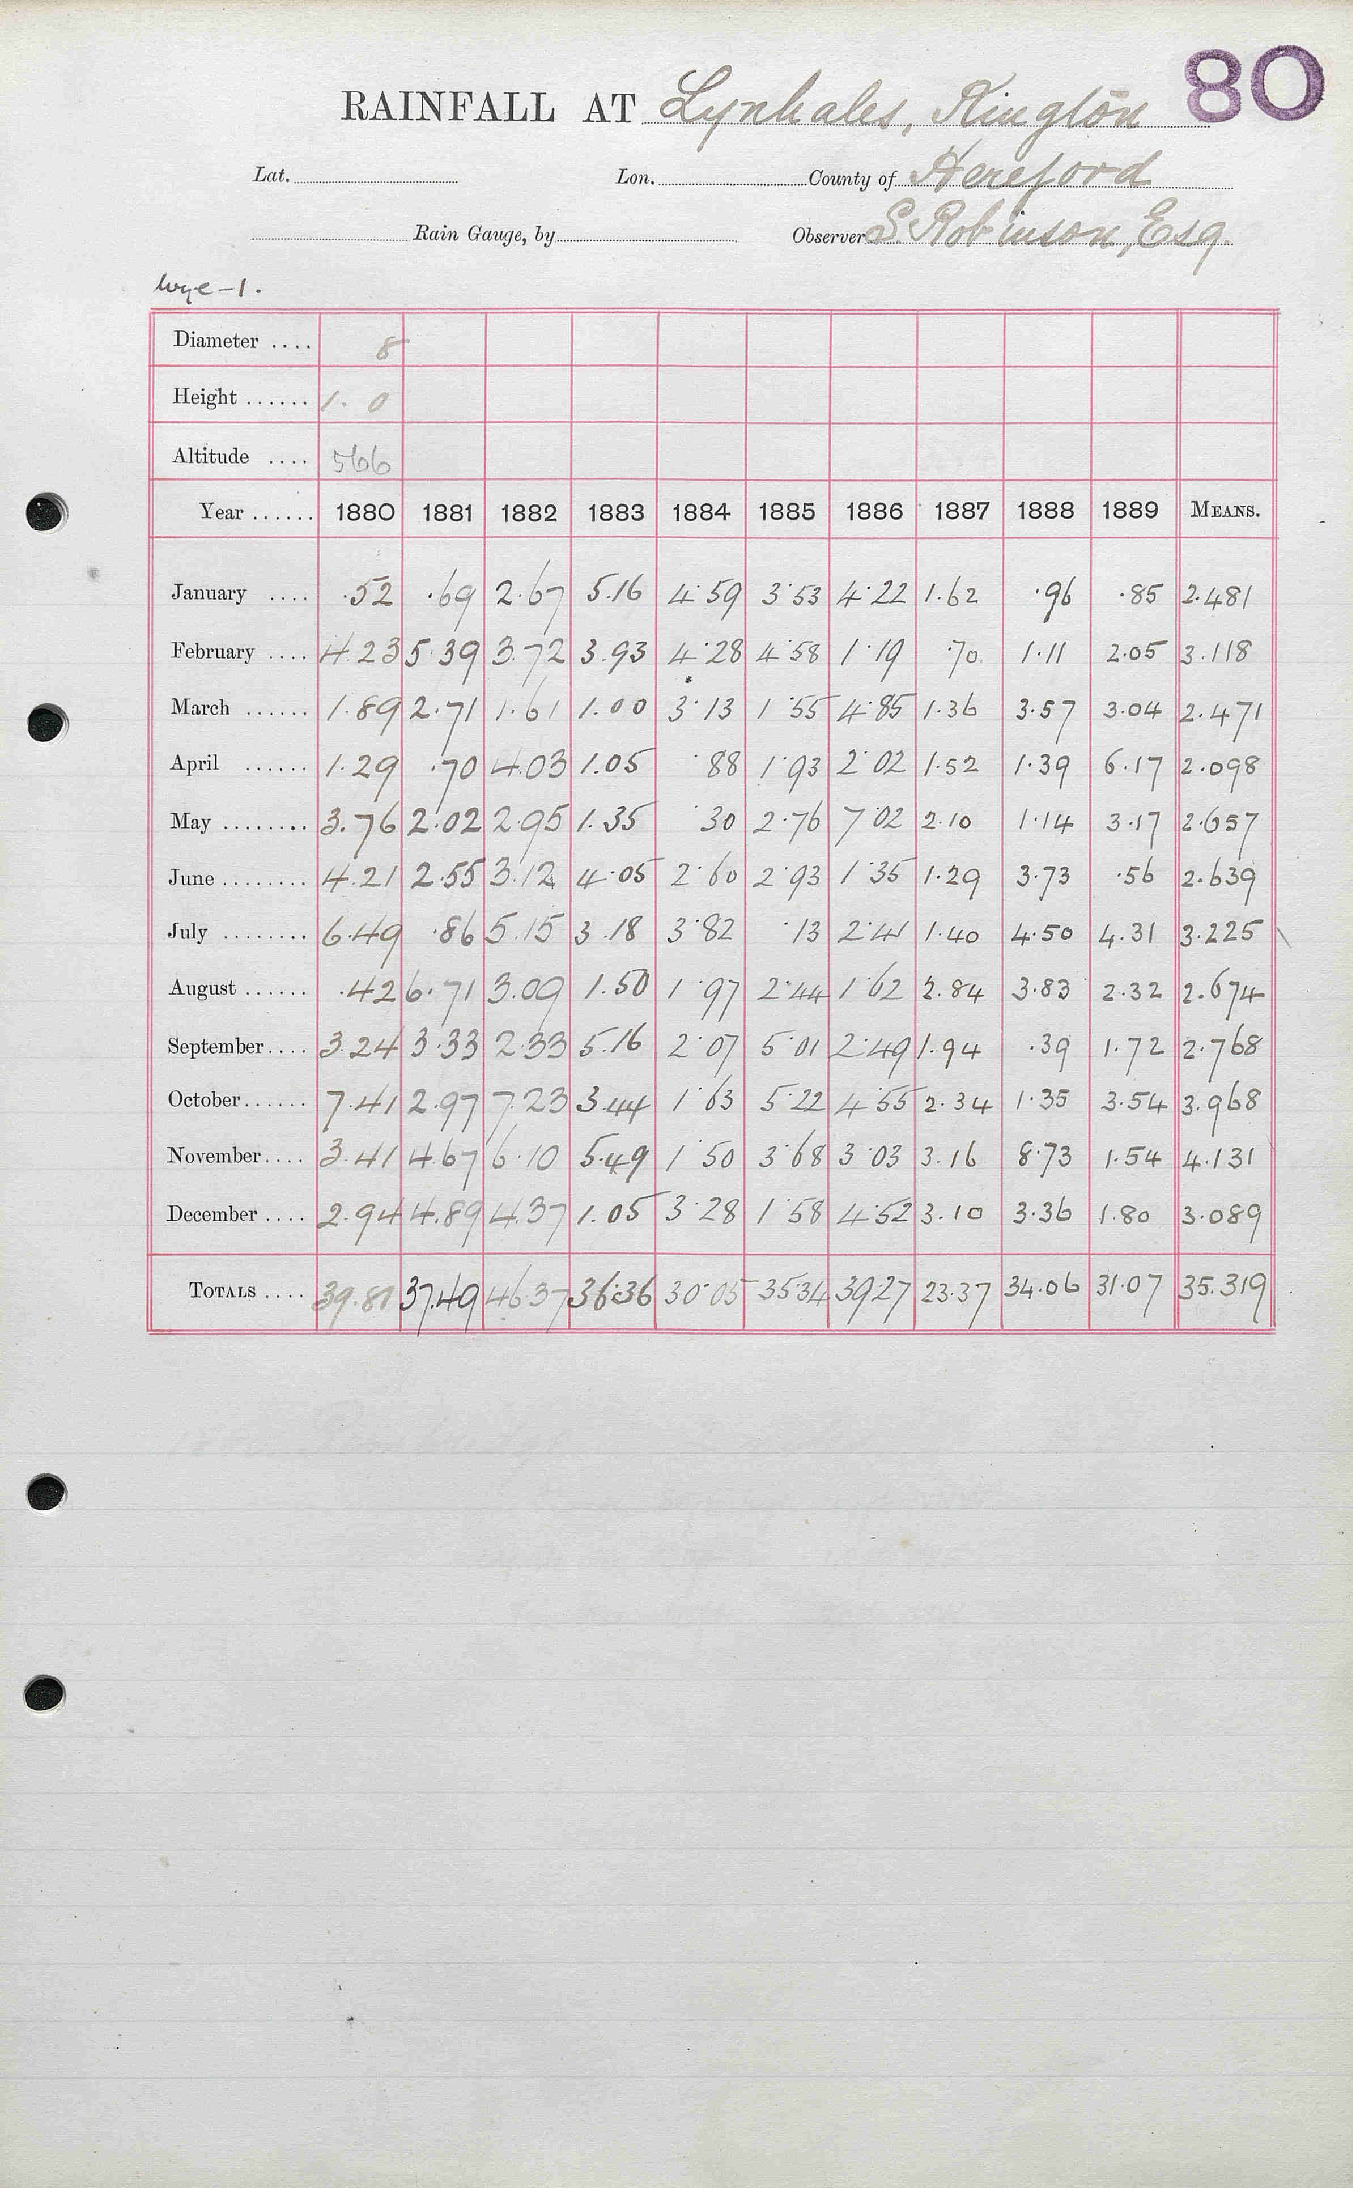 80
RAINFALL AT Lynhales, Kington
Lat. Lon. County of Hereford
Rain Gauge, by Observer S. Robinson, Esq.
Wye-1.
Diameter .... 8
Height ...... 1. 0
Altitude .... 566
Year ...... 1880 1881 1882 1883 1884 1885 1886 1887 1888 1889 MEANS.
January .... .52 .69 2.67 5.16 4.59 3.53 4.22 1.62 .96 .85 2.481
February .... 4.23 5.39 3.72 3.93 4.28 4.58 1.19 .70 1.11 2.05 3.118
March ...... 1.89 2.71 1.61 1.00 3.13 1.55 4.85 1.36 3.57 3.04 2.471
April ...... 1.29 .70 4.03 1.05 .88 1.93 2.02 1.52 1.39 6.17 2.098
May ........ 3.76 2.02 2.95 1.35 .30 2.76 7.02 2.10 1.14 3.17 2.657
June ........ 4.21 2.55 3.12 4.05 2.60 2.93 1.35 1.29 3.73 .56 2.639
July ........ 6.49 .86 5.15 3.18 3.82 .13 2.41 1.40 4.50 4.31 3.225
August ...... .42 6.71 3.09 1.50 1.97 2.44 1.62 2.84 3.83 2.32 2.674
September.... 3.24 3.33 2.33 5.16 2.07 5.01 2.49 1.94 .39 1.72 2.768
October...... 7.41 2.97 7.23 3.44 1.63 5.22 4.55 2.34 1.35 3.54 3.968
November.... 3.41 4.67 6.10 5.49 1.50 3.68 3.03 3.16 8.73 1.54 4.131
December .... 2.94 4.89 4.37 1.05 3.28 1.58 4.52 3.10 3.36 1.80 3.089
TOTALS .... 39.81 37.49 46.37 36.36 30.05 35.34 39.27 23.37 34.06 31.07 35.319